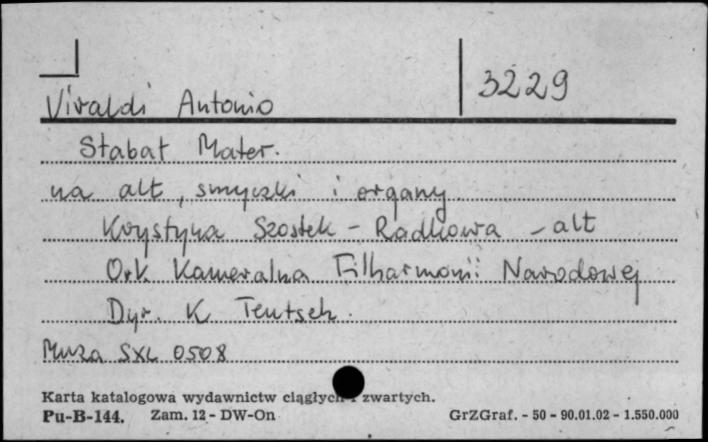 3229
Vivaldi Antonio
Stabat Mater.
na alt, smyczki i organy
Krystyna Szostek - Radkowa - alt
Ork. Kameralna Filharmonii Narodowej
Dyr. K Teutsch.
Muza SXL 0508
Karta katalogowa wydawnictw ciągłych i zwartych.
Pu-B-144. Zam. 12 - DW-On GrZGraf. - 50 - 90.01.02 - 1.550.000